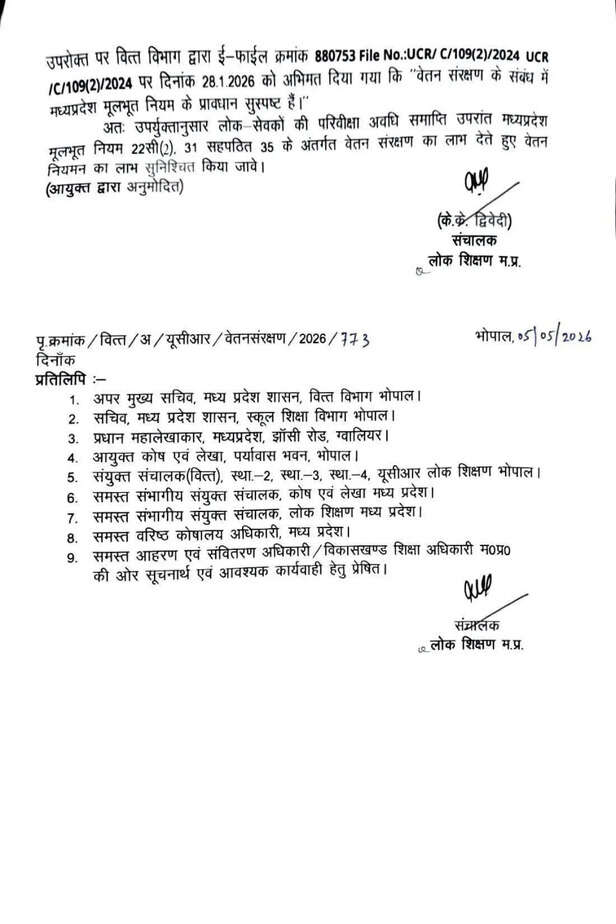 उपरोक्त पर वित्त विभाग द्वारा ई–फाईल क्रमांक 880753 File No.:UCR/ C/109(2)/2024 UCR
/C/109(2)/2024 पर दिनांक 28.1.2026 को अभिमत दिया गया कि "वेतन संरक्षण के संबंध में
मध्यप्रदेश मूलभूत नियम के प्रावधान सुस्पष्ट हैं।"
अतः उपर्युक्तानुसार लोक–सेवकों की परिवीक्षा अवधि समाप्ति उपरांत मध्यप्रदेश
मूलभूत नियम 22सी(2). 31 सहपठित 35 के अंतर्गत वेतन संरक्षण का लाभ देते हुए वेतन
नियमन का लाभ सुनिश्चित किया जावे।
(आयुक्त द्वारा अनुमोदित)
(के.के. द्विवेदी)
संचालक
लोक शिक्षण म.प्र.
पृ.क्रमांक/वित्त/अ/यूसीआर/वेतनसंरक्षण/2026/773 भोपाल, 05/05/2026
दिनाँक
प्रतिलिपि :–
1. अपर मुख्य सचिव, मध्य प्रदेश शासन, वित्त विभाग भोपाल।
2. सचिव, मध्य प्रदेश शासन, स्कूल शिक्षा विभाग भोपाल।
3. प्रधान महालेखाकार, मध्यप्रदेश, झाँसी रोड, ग्वालियर।
4. आयुक्त कोष एवं लेखा, पर्यावास भवन, भोपाल।
5. संयुक्त संचालक(वित्त), स्था.–2, स्था.–3, स्था.–4, यूसीआर लोक शिक्षण भोपाल।
6. समस्त संभागीय संयुक्त संचालक, कोष एवं लेखा मध्य प्रदेश।
7. समस्त संभागीय संयुक्त संचालक, लोक शिक्षण मध्य प्रदेश।
8. समस्त वरिष्ठ कोषालय अधिकारी, मध्य प्रदेश।
9. समस्त आहरण एवं संवितरण अधिकारी/विकासखण्ड शिक्षा अधिकारी म0प्र0
की ओर सूचनार्थ एवं आवश्यक कार्यवाही हेतु प्रेषित।
संचालक
लोक शिक्षण म.प्र.